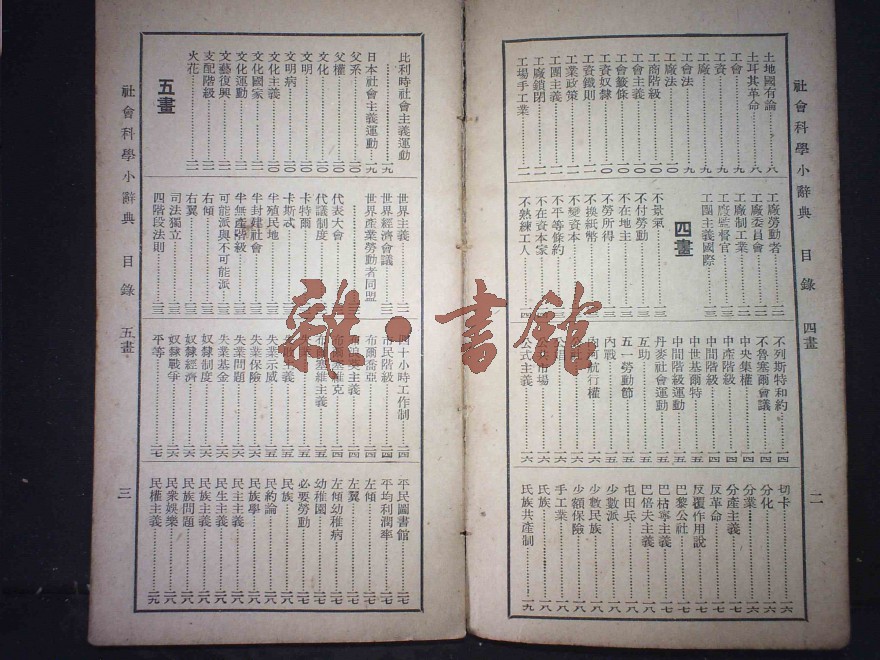 社會科學小辭典 目錄 四畫
二
土地國有論 八
土耳其革命 八
工會 九
工資 九
工廠 九
工會法 九
工廠法 九
工商階級 一〇
工會主義 一〇
工會簽條 一〇
工資奴隸 一〇
工資鐵則 一〇
工業政策 一一
工團主義 一一
工廠鎖閉 一一
工場手工業 一一
工廠勞動者 一二
工廠委員會 一二
工廠制工業 一二
工廠監督官 一三
工團主義國際 一三
四畫
不景氣 一三
不付勞動 一三
不在地主 一三
不勞所得 一三
不換紙幣 一三
不變資本 一三
不平等條約 一三
不在資本家
不熟練工人 一四
不列斯特和約 一四
不魯塞爾會議 一四
中央集權 一四
中產階級 一四
中間階級 一四
中世基爾特 一五
中間階級運動 一五
丹麥社會運動 一五
互助 一五
五一勞動節 一五
內戰 一五
內河航行權 一六
公式主義 一六
切卡 一六
分化 一六
分業 一六
分產主義 一七
反革命 一七
反覆作用說 一七
巴黎公社 一七
巴枯寧主義 一七
巴倍夫主義 一八
屯田兵 一八
少數派 一八
少數民族 一八
少額保險 一八
手工業 一八
氏族 一八
氏族共產制 一九
比利時社會主義運動 一九
日本社會主義運動 一九
父系 二〇
父權 二〇
文化 二〇
文明 二〇
文明病 二〇
文化主義 二〇
文化國家 二一
文化運動 二一
文藝復興 二一
支配階級 二一
火花 二一
五畫
世界主義
世界經濟會議
世界產業勞動者同盟
代表大會
代議制度
卡特爾
卡斯忒
半殖民地
半封建社會
半無產階級
可能派與不可能派
右傾
右翼
司法獨立
四階段法則
四十小時工作制 二四
市民階級 二四
布爾喬亞 二四
布爾塞維克 二四
布爾塞維主義 二五
失業示威 二五
失業保險 二六
失業問題 二六
失業基金 二六
奴隸制度 二六
奴隸經濟 二六
奴隸戰爭 二六
平等 二七
平民圖書館 二七
平均利潤率 二七
左傾 二七
左翼 二七
左傾幼稚病 二七
幼稚園 二七
必要勞動 二八
民族 二八
民約論 二八
民族學 二八
民主主義 二八
民生主義 二八
民族主義 二八
民族問題 二八
民衆娛樂 二八
民權主義 二九
社會科學小辭典 目錄 五畫
三
雜·書館